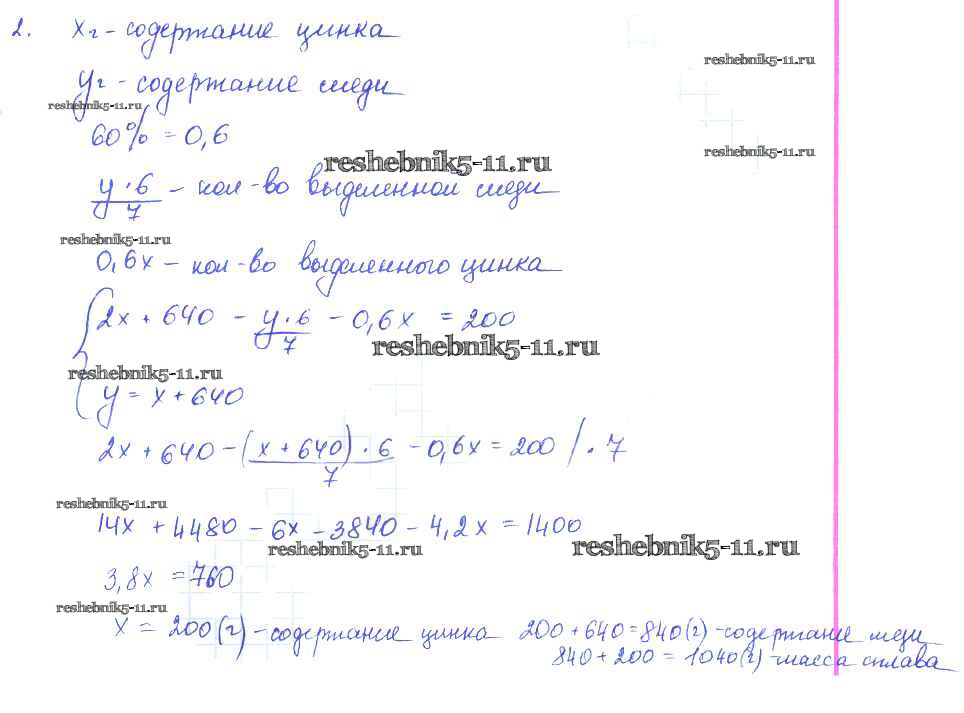 2. xг - содержание цинка
reshebnik5-11.ru
yг - содержание меди
reshebnik5-11.ru
60% = 0,6
reshebnik5-11.ru
reshebnik5-11.ru
y·6/7 - кол-во выделенной меди
reshebnik5-11.ru
0,6x - кол-во выделенного цинка
{ 2x + 640 - y·6/7 - 0,6x = 200
reshebnik5-11.ru
reshebnik5-11.ru
y = x + 640
2x + 640 - (x + 640)·6/7 - 0,6x = 200 /·7
reshebnik5-11.ru
14x + 4480 - 6x - 3840 - 4,2x = 1400
reshebnik5-11.ru
reshebnik5-11.ru
3,8x = 760
reshebnik5-11.ru
x = 200(г) - содержание цинка 200 + 640 = 840(г) - содержание меди
840 + 200 = 1040(г) - масса сплава